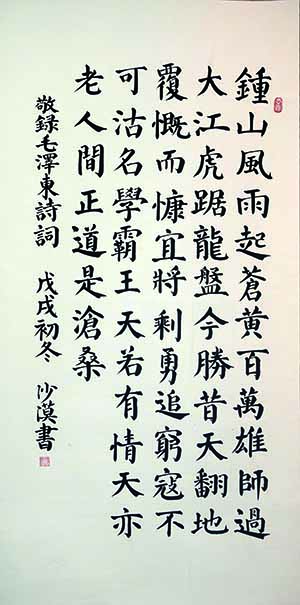 鍾山風雨起蒼黃百萬雄師過
大江虎踞龍盤今勝昔天翻地
覆慨而慷宜將剩勇追窮寇不
可沽名學霸王天若有情天亦
老人間正道是滄桑
敬錄毛澤東詩詞 戊戌初冬 沙漠書